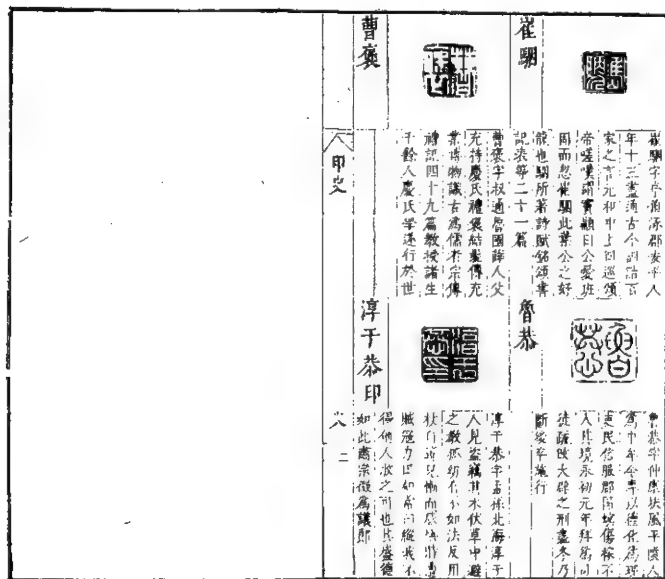 崔駰
崔駰字亭伯涿郡安平人
年十三盡通古今訓詁百
家之言元和中上四巡頌
帝嗟嘆謂竇顯曰公愛班
固而忽崔駰此葉公之好
龍也駰所著詩賦銘頌書
記表等二十一篇
曹褒
曹褒字叔通魯國薛人父
充持慶氏禮褒結髮傳充
業博物識古為儒者宗傳
禮記四十九篇教授諸生
千餘人慶氏學遂行於世
印史
魯恭
魯恭字仲康扶風平陵人
為中牟令專以德化為理
吏民信服郡國螟傷稼不
入其境永初元年拜為司
徒疏改大辟之刑盡冬乃
斷
淳于恭印
淳于恭字孟孫北海淳于
人見盜竊其禾伏草中避
之教孤幼有不如法反用
杖自
賊
得他人
如此肅宗徵為議郎